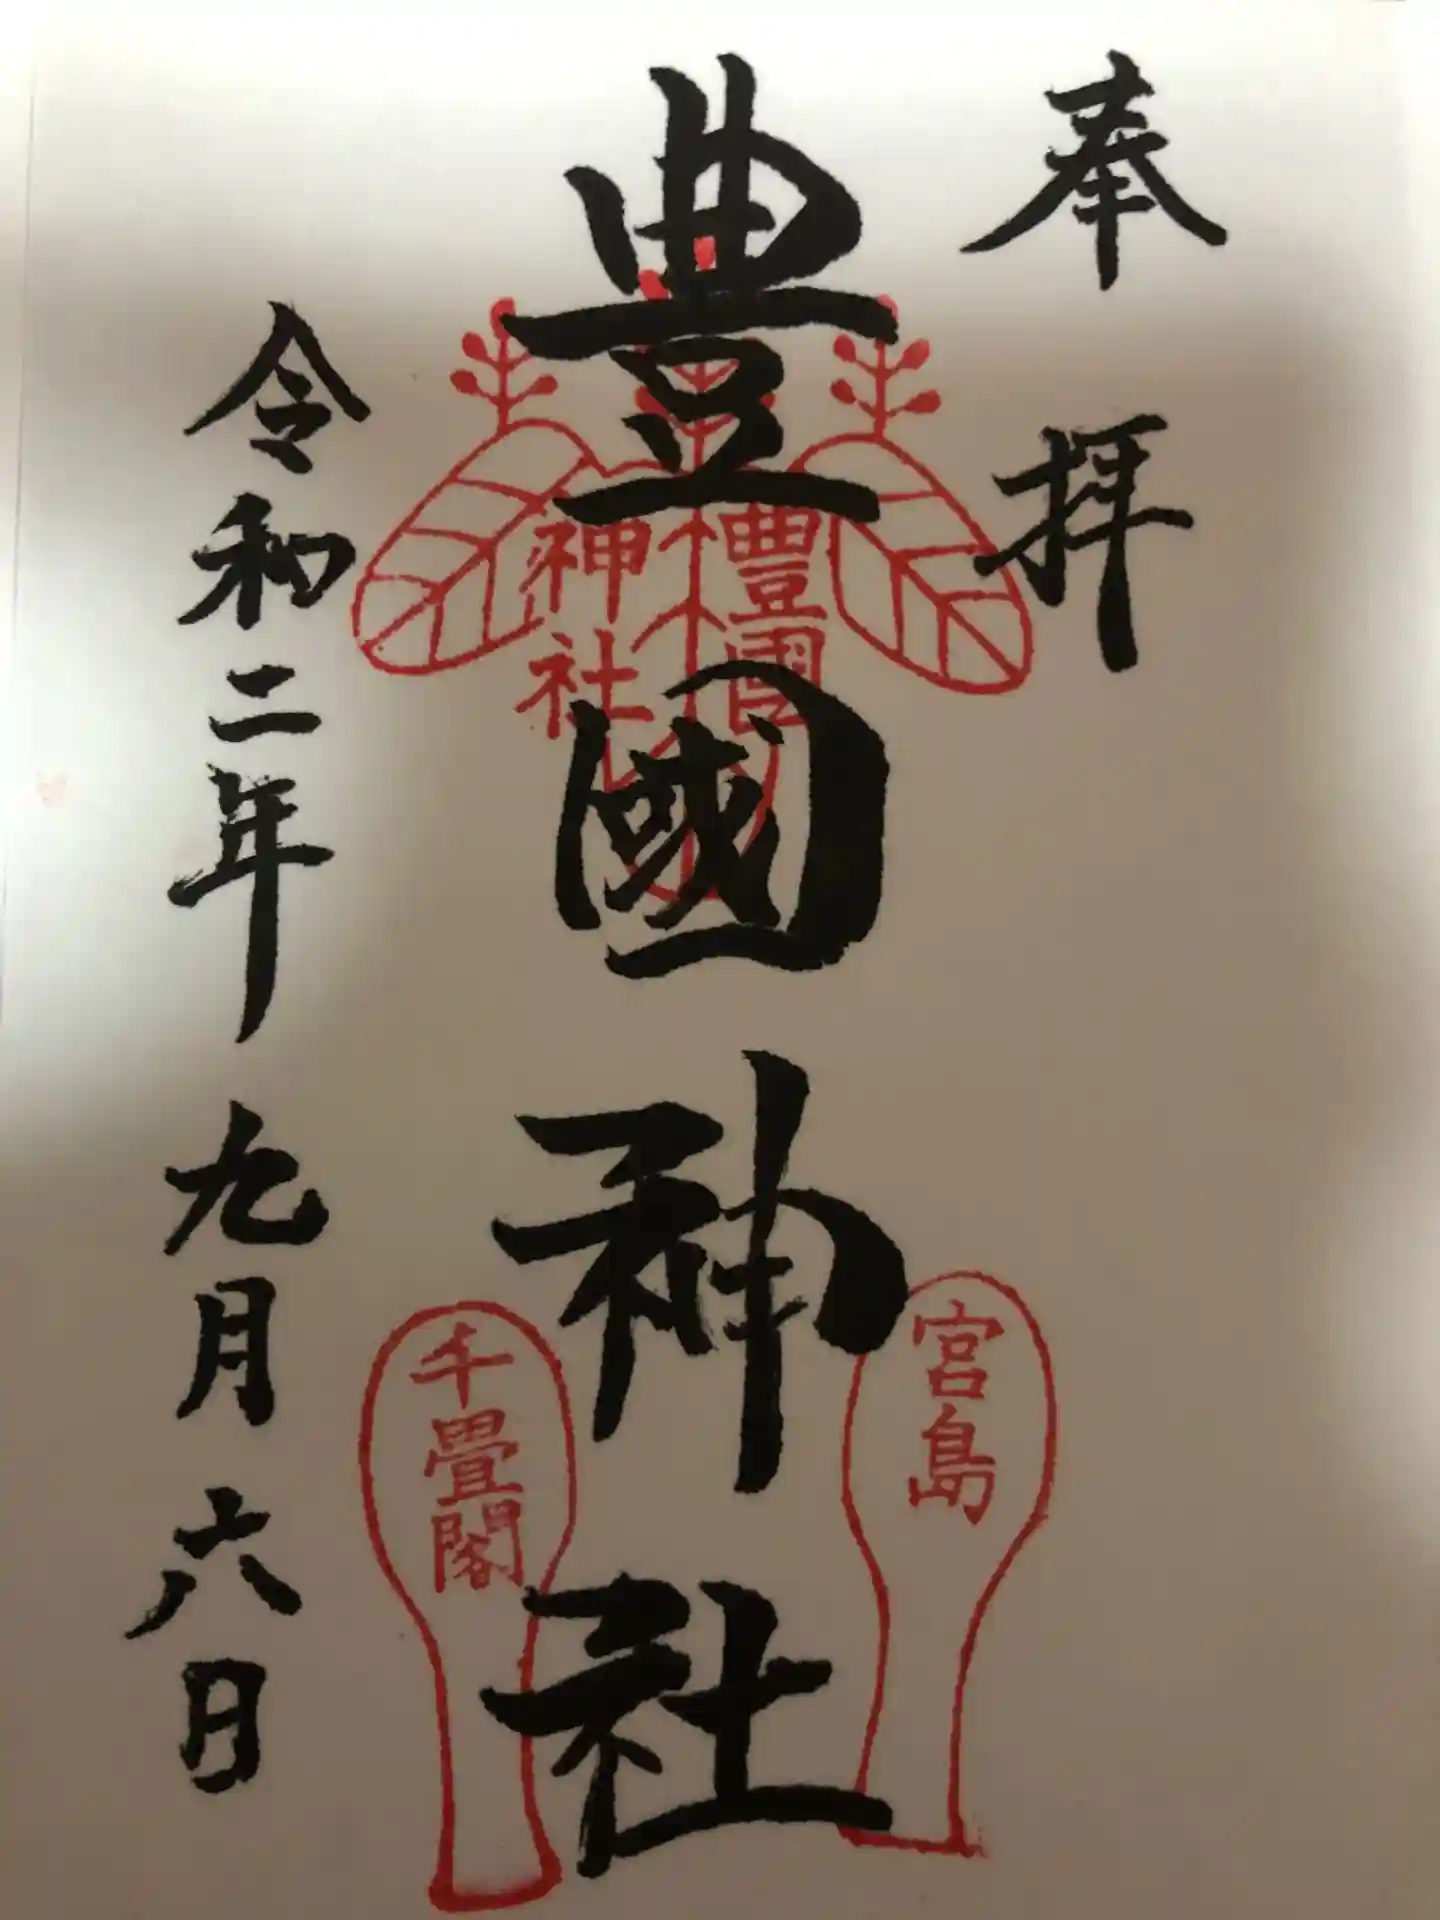 奉拝
豊國神社
令和二年九月六日
豊國
神社
宮島
千畳閣